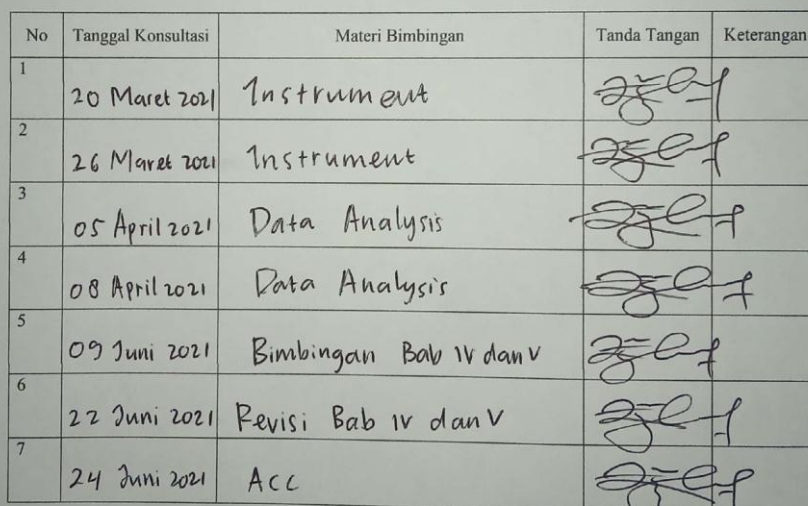 No Tanggal Konsultasi Materi Bimbingan Tanda Tangan Keterangan
1
20 Maret 2021 Instrument
2
26 Maret 2021 Instrument
3
05 April 2021 Data Analysis
4
08 April 2021 Data Analysis
5
09 Juni 2021 Bimbingan Bab IV dan V
6
22 Juni 2021 Revisi Bab IV dan V
7
24 Juni 2021 ACC